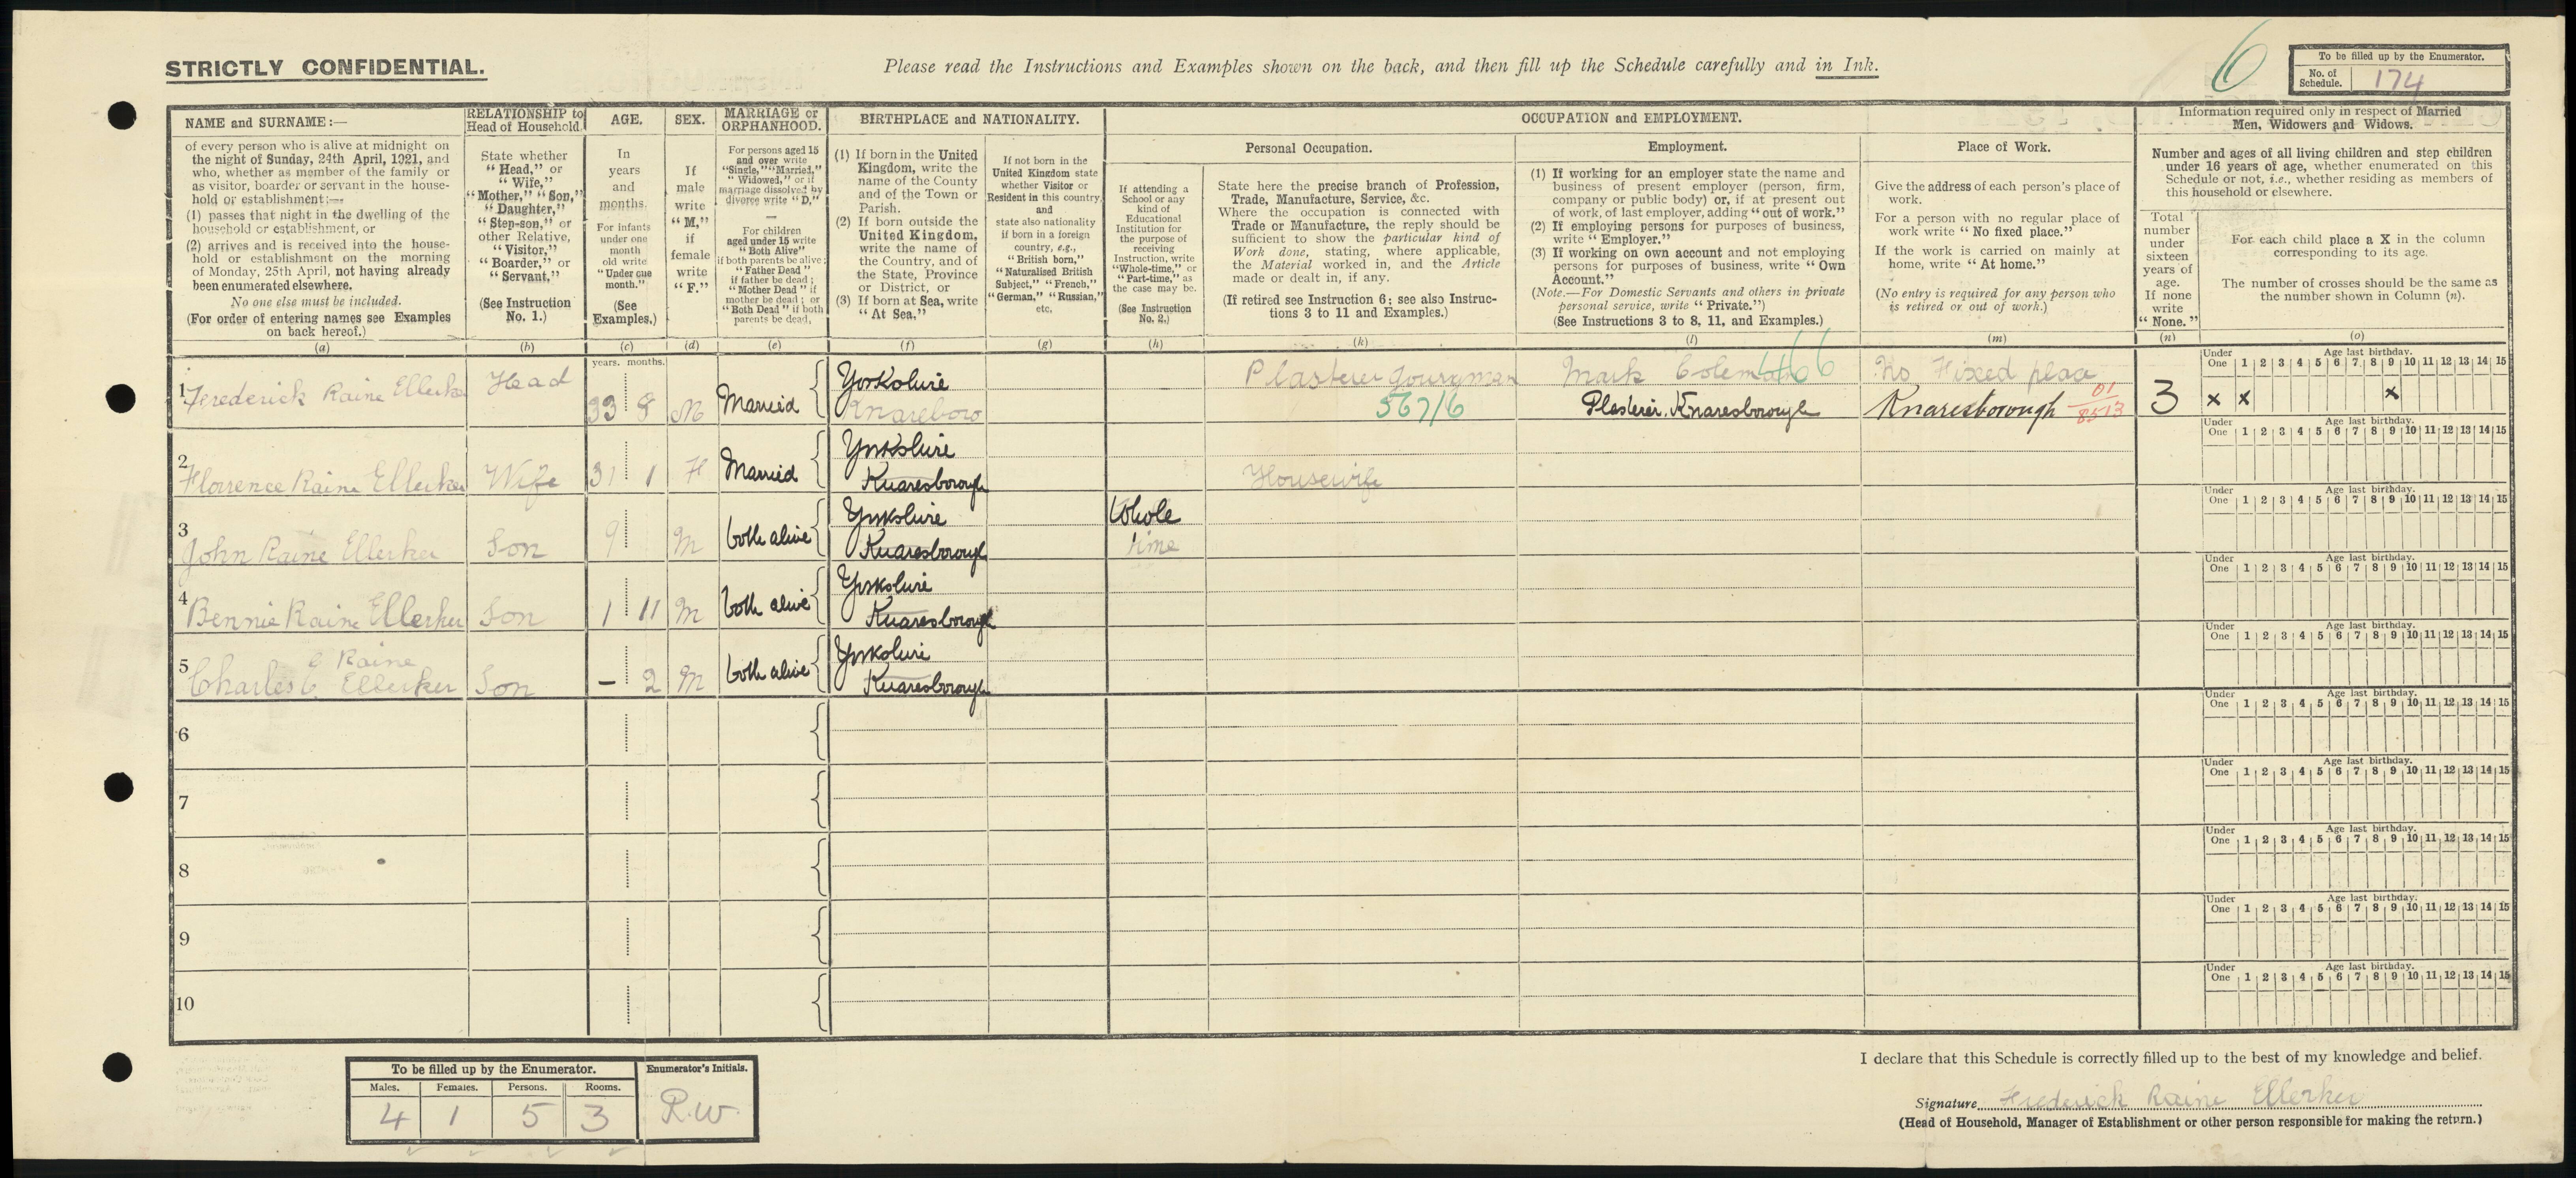 STRICTLY CONFIDENTIAL.
Please read the Instructions and Examples shown on the back, and then fill up the Schedule carefully and in Ink.
6
To be filled up by the Enumerator.
No. of Schedule. 174
NAME and SURNAME:—
of every person who is alive at midnight on
the night of Sunday, 24th April, 1921, and
who, whether as member of the family or
as visitor, boarder or servant in the house-
hold or establishment:—
(1) passes that night in the dwelling of the
household or establishment, or
(2) arrives and is received into the house-
hold or establishment on the morning
of Monday, 25th April, not having already
been enumerated elsewhere.
No one else must be included.
(For order of entering names see Examples
on back hereof.)
(a)
RELATIONSHIP to
Head of Household.
State whether
"Head," or
"Wife,"
"Mother," "Son,"
"Daughter,"
"Step-son," or
other Relative,
"Visitor,"
"Boarder," or
"Servant."
(See Instruction
No. 1.)
(b)
AGE.
In
years
and
months.
For infants
under one
month
old write
"Under one
month."
(See
Examples.)
(c)
SEX.
If
male
write
"M,"
if
female
write
"F."
(d)
MARRIAGE or
ORPHANHOOD.
For persons aged 15
and over write
"Single," "Married,"
"Widowed," or if
marriage dissolved by
divorce write "D."
—
For children
aged under 15 write
"Both Alive"
if both parents be alive;
"Father Dead"
if father be dead;
"Mother Dead" if
mother be dead; or
"Both Dead" if both
parents be dead.
(e)
BIRTHPLACE and NATIONALITY.
(1) If born in the United
Kingdom, write the
name of the County
and of the Town or
Parish.
(2) If born outside the
United Kingdom,
write the name of
the Country, and of
the State, Province
or District, or
(3) If born at Sea, write
"At Sea."
(f)
If not born in the
United Kingdom state
whether Visitor or
Resident in this country,
and
state also nationality
if born in a foreign
country, e.g.,
"British born,"
"Naturalised British
Subject," "French,"
"German," "Russian,"
etc.
(g)
OCCUPATION and EMPLOYMENT.
If attending a
School or any
kind of
Educational
Institution for
the purpose of
receiving
Instruction, write
"Whole-time," or
"Part-time," as
the case may be.
(See Instruction
No. 2.)
(h)
Personal Occupation.
State here the precise branch of Profession,
Trade, Manufacture, Service, &c.
Where the occupation is connected with
Trade or Manufacture, the reply should be
sufficient to show the particular kind of
Work done, stating, where applicable,
the Material worked in, and the Article
made or dealt in, if any.
(If retired see Instruction 6; see also Instruc-
tions 3 to 11 and Examples.)
(k)
Employment.
(1) If working for an employer state the name and
business of present employer (person, firm,
company or public body) or, if at present out
of work, of last employer, adding "out of work."
(2) If employing persons for purposes of business,
write "Employer."
(3) If working on own account and not employing
persons for purposes of business, write "Own
Account."
(Note.—For Domestic Servants and others in private
personal service, write "Private.")
(See Instructions 3 to 8, 11, and Examples.)
(l)
Place of Work.
Give the address of each person's place of
work.
For a person with no regular place of
work write "No fixed place."
If the work is carried on mainly at
home, write "At home."
(No entry is required for any person who
is retired or out of work.)
(m)
Information required only in respect of Married
Men, Widowers and Widows.
Number and ages of all living children and step children
under 16 years of age, whether enumerated on this
Schedule or not, i.e., whether residing as members of
this household or elsewhere.
Total
number
under
sixteen
years of
age.
If none
write
"None."
(n)
For each child place a X in the column
corresponding to its age.
The number of crosses should be the same as
the number shown in Column (n).
(o)
years. months.
Under One Age last birthday. 1 2 3 4 5 6 7 8 9 10 11 12 13 14 15
1 Frederick Raine Ellerker Head 33 8 M Married Yorkshire Knaresboro Plasterer Journyman 567/6 Mark 466 Plasterer, Knaresborough No Fixed place Knaresborough 01 8513 3 x x x
Under One Age last birthday. 1 2 3 4 5 6 7 8 9 10 11 12 13 14 15
2 Florrence Raine Ellerker Wife 31 1 F Married Yorkshire Knaresborough Housewife
Under One Age last birthday. 1 2 3 4 5 6 7 8 9 10 11 12 13 14 15
3 John Raine Ellerker Son 9 M both alive Yorkshire Knaresborough Whole time
Under One Age last birthday. 1 2 3 4 5 6 7 8 9 10 11 12 13 14 15
4 Bennie Raine Ellerker Son 1 11 M both alive Yorkshire Knaresborough
Under One Age last birthday. 1 2 3 4 5 6 7 8 9 10 11 12 13 14 15
5 Charles C Raine Ellerker Son – 2 M both alive Yorkshire Knaresborough
Under One Age last birthday. 1 2 3 4 5 6 7 8 9 10 11 12 13 14 15
6
Under One Age last birthday. 1 2 3 4 5 6 7 8 9 10 11 12 13 14 15
7
Under One Age last birthday. 1 2 3 4 5 6 7 8 9 10 11 12 13 14 15
8
Under One Age last birthday. 1 2 3 4 5 6 7 8 9 10 11 12 13 14 15
9
Under One Age last birthday. 1 2 3 4 5 6 7 8 9 10 11 12 13 14 15
10
To be filled up by the Enumerator.
Males. Females. Persons. Rooms.
4 1 5 3
Enumerator's Initials.
R.W.
I declare that this Schedule is correctly filled up to the best of my knowledge and belief.
Signature Frederick Raine Ellerker
(Head of Household, Manager of Establishment or other person responsible for making the return.)